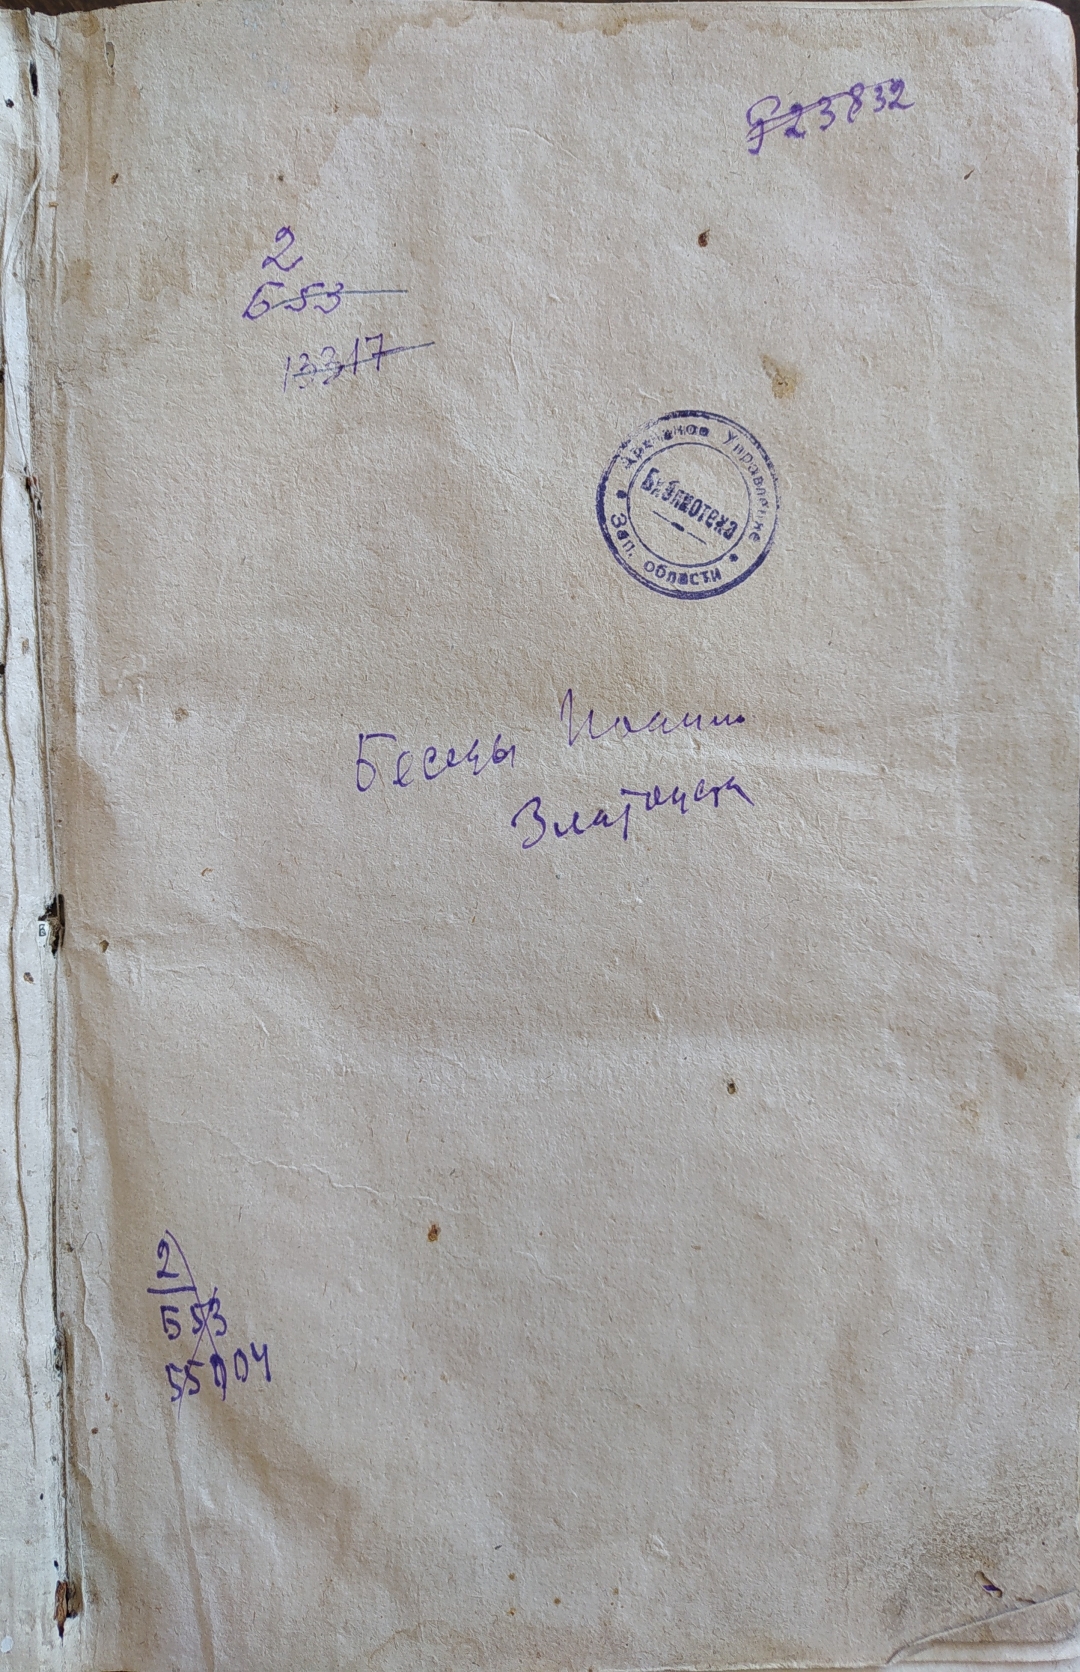 23832
2
Б 53
13317
Архивное Управление
Библиотека
Зап. области
Беседы Иоанна
Златоуста
2
Б 53
55904